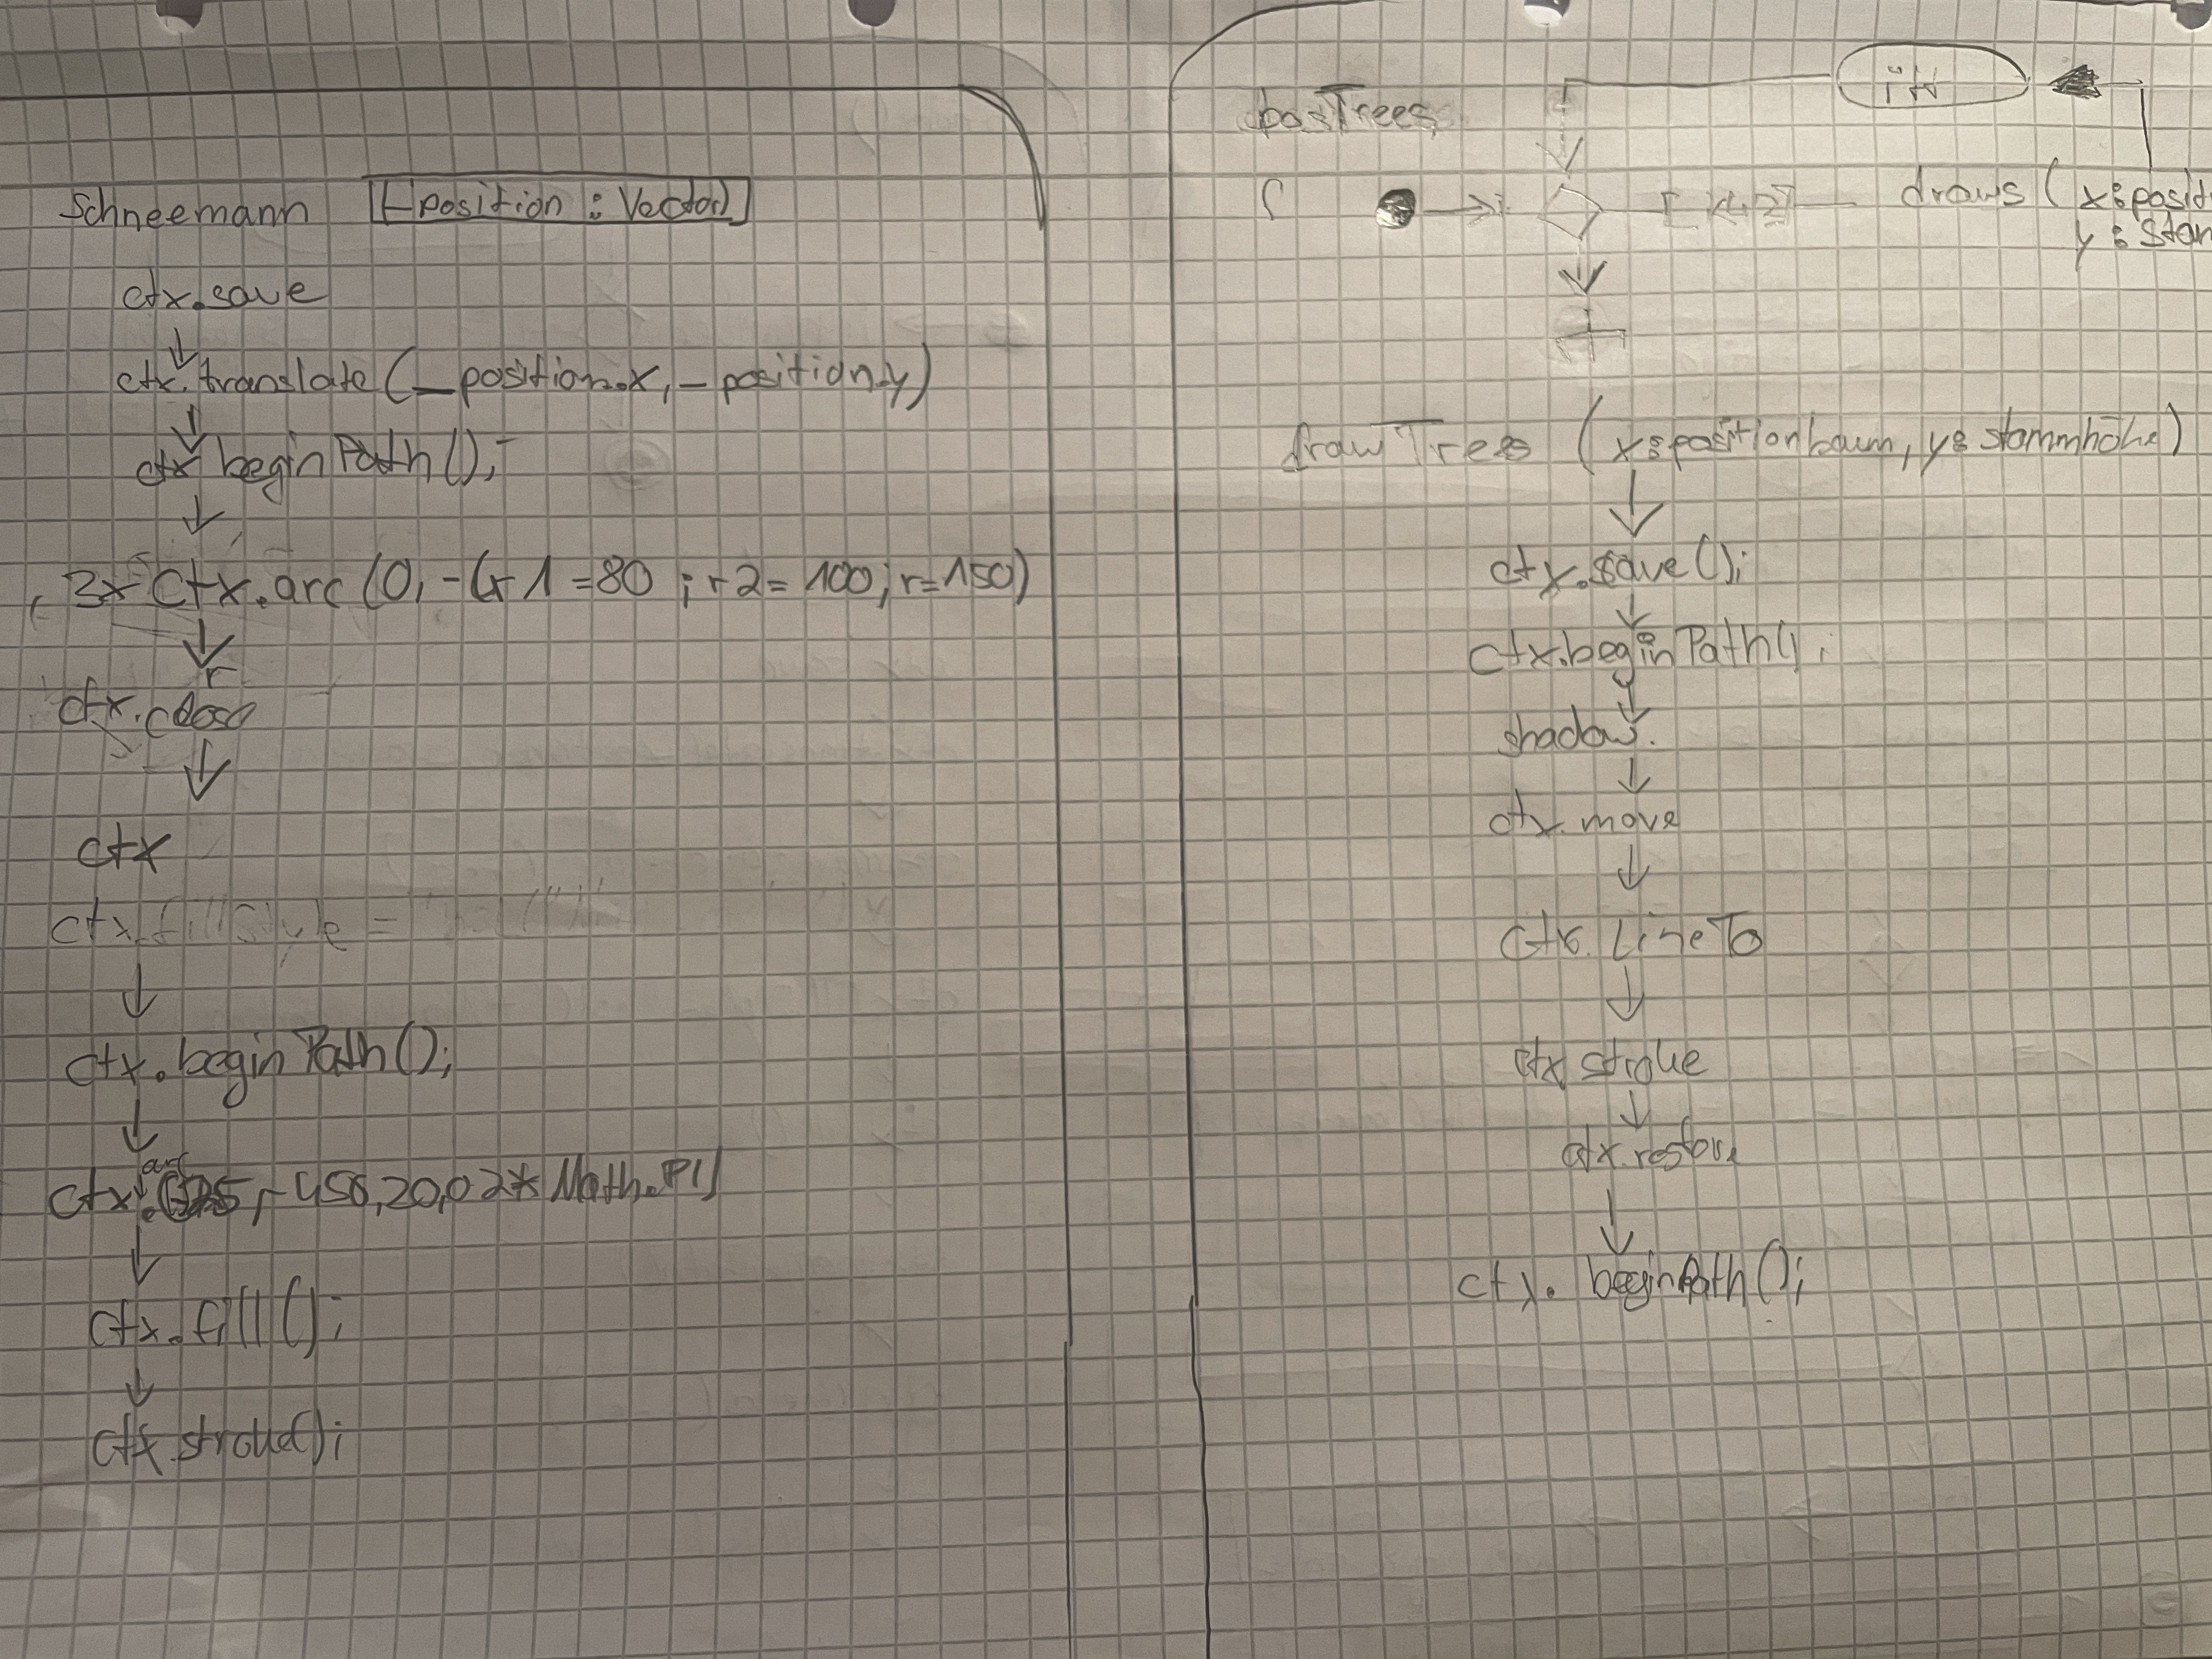 Schneemann [-position : Vector]
ctx.save
ctx.translate(_position.x, -position.y)
ctx beginPath();
3x ctx.arc (0, -(r1=80 ; r2=100; r=150)
ctx.close
ctx
ctx.fillStyle =
ctx.beginPath();
arc
ctx. -450,20,0 2* Math.PI)
ctx.fill();
ctx.stroke();
posTrees
draws ( x:posit
y: stam
drawTrees (x:positionbaum, y: stammhöhe)
ctx.save();
ctx.beginPath();
shadow.
ctx.move
ctx. LineTo
ctx stroke
ctx.restore
ctx. beginPath();